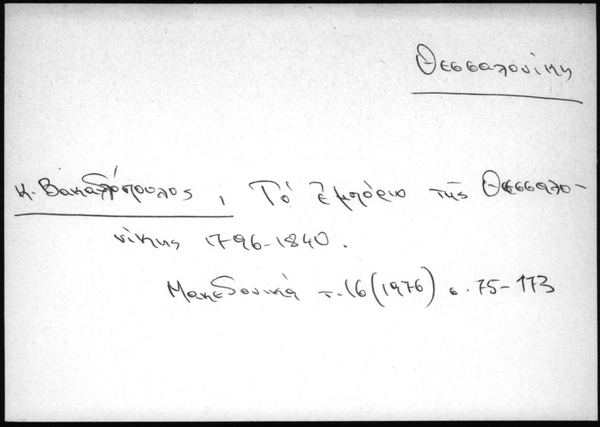 Θεσσαλονίκη
Κ. Βακαλόπουλος, Τό ἐμπόριο τῆς Θεσσαλο-
νίκης 1796-1840.
Μακεδονικά τ. 16 (1976) σ. 75-173